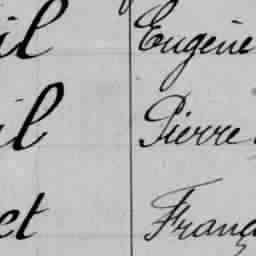 il Eugène
il Pierre
et Franç